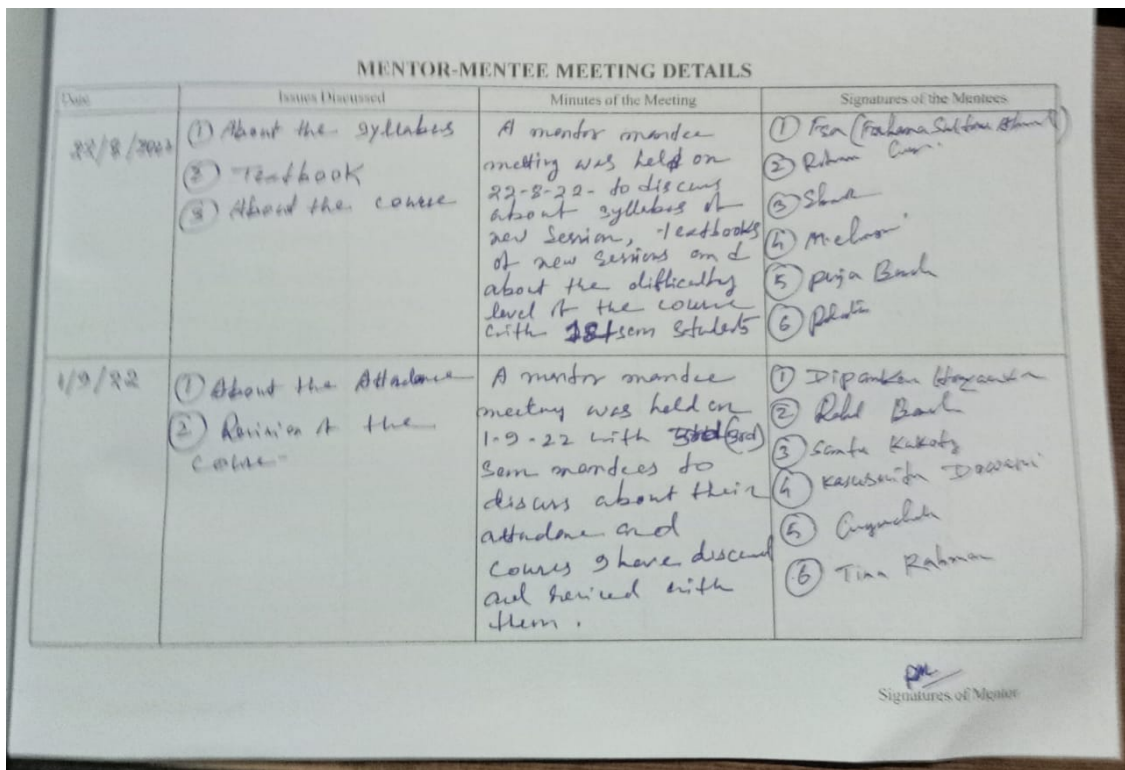 MENTOR-MENTEE MEETING DETAILS
Date
Issues Discussed
Minutes of the Meeting
Signatures of the Mentees
22/8/2022
① About the syllabus
② Textbook
③ About the course
A mentor mandee
metting was held on
22-8-22- to discuss
about syllabus of
new Session, textbooks
of new sessions and
about the difficulty
level of the course
with 1st sem students
① Fsa (Farhana Sultana Ahmed)
②
③
④
⑤ puja
⑥
1/9/22
① About the Attadance
② Revision of the
course-
A mentor mandee
meeting was held on
1-9-22 with (3rd)
Sem mandees to
discuss about their
attadane and
courses I have discussed
and reviced with
them.
① Dipankar
②
③ Santu Kakoty
④
⑤
⑥ Tina Rahman
Signatures of Mentor